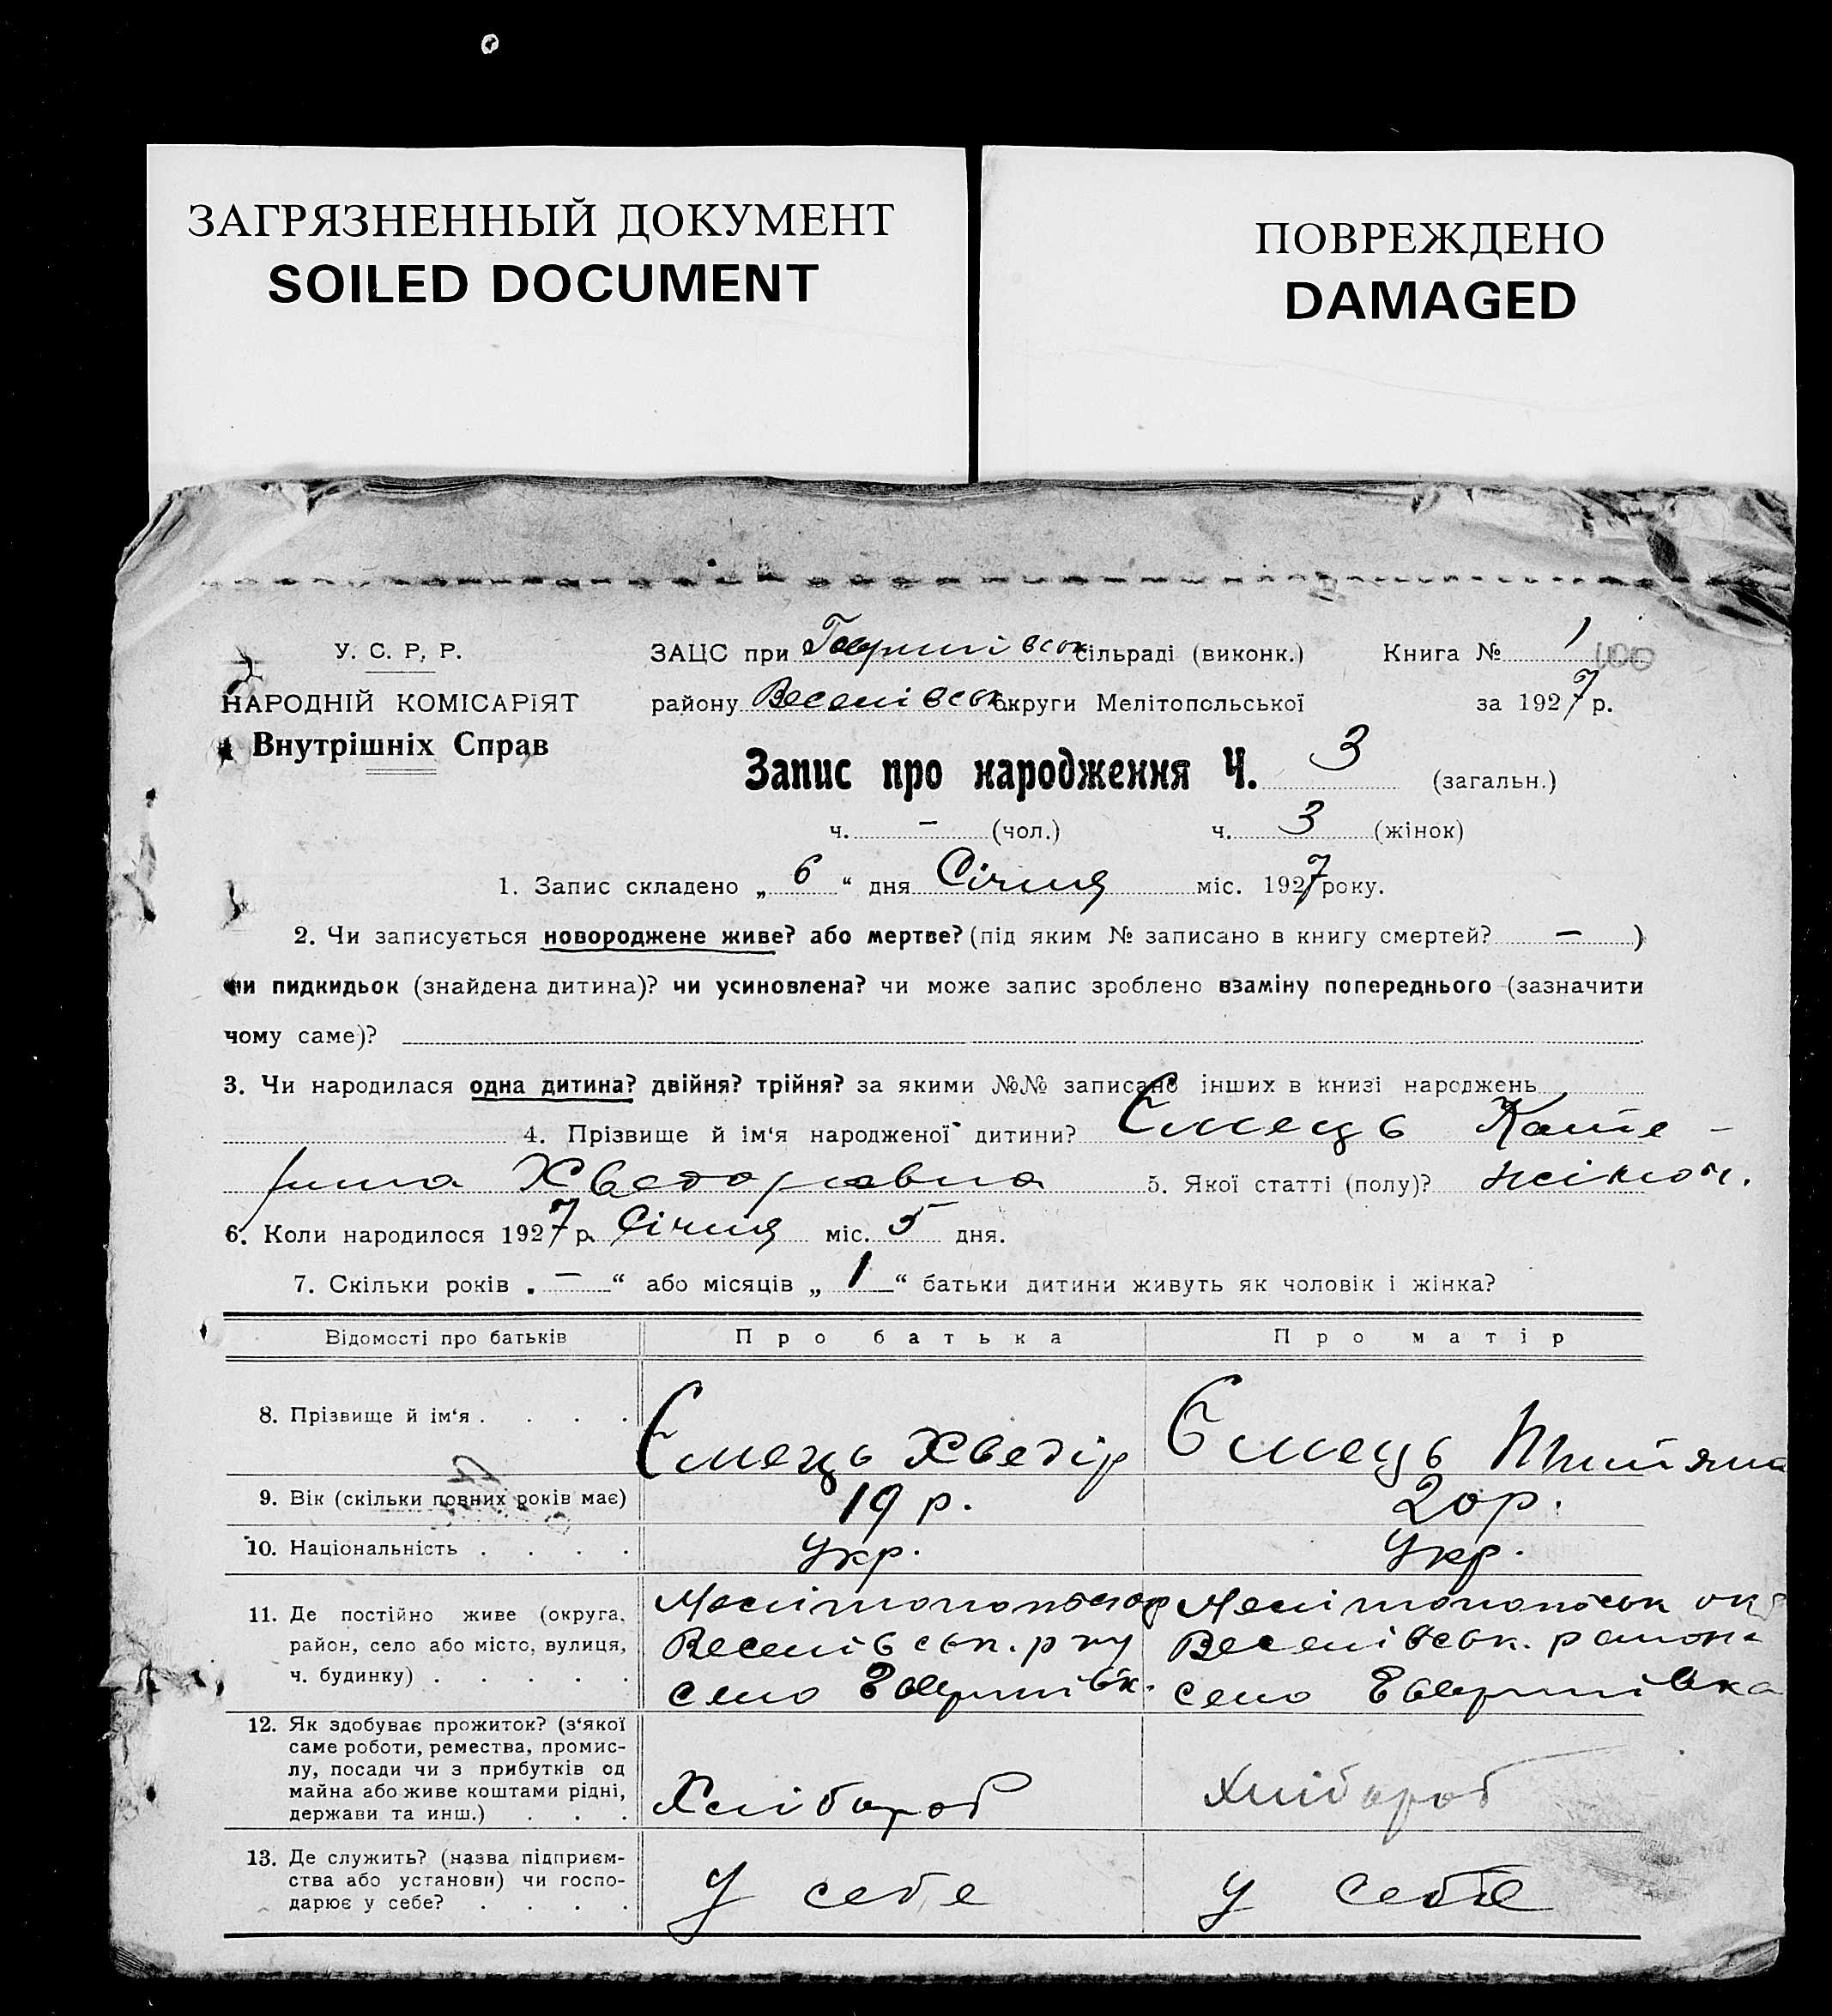 ЗАГРЯЗНЕННЫЙ ДОКУМЕНТ
SOILED DOCUMENT
ПОВРЕЖДЕНО
DAMAGED
У. С. Р. Р.
НАРОДНІЙ КОМІСАРІЯТ
Внутрішніх Справ
ЗАЦС при сільраді (виконк.)
району Веселівськ округи Мелітопольської
Книга № 1 100
за 1927 р.
Запис про народження Ч. 3 (загальн.)
ч. – (чол.) ч. 3 (жінок)
1. Запис складено „ 6 “ дня Січня міс. 1927 року.
2. Чи записується новороджене живе? або мертве? (під яким № записано в книгу смертей? – )
чи пидкидьок (знайдена дитина)? чи усиновлена? чи може запис зроблено взаміну попереднього (зазначити
чому саме)?
3. Чи народилася одна дитина? двійня? трійня? за якими №№ записано інших в книзі народжень
4. Прізвище й ім‘я народженої дитини? Ємець Кате-
рина Хведоровна 5. Якої статті (полу)? жіноч.
6. Коли народилося 1927 р. Січня міс. 5 дня.
7. Скільки років „ – “ або місяців „ 1 “ батьки дитини живуть як чоловік і жінка?
Відомості про батьків Про батька Про матір
8. Прізвище й ім‘я . . . . Ємець Хведір Ємець Титяна
9. Вік (скільки повних років має) 19 р. 20 р.
10. Національність . . . . Укр. Укр.
11. Де постійно живе (округа,
район, село або місто, вулиця,
ч. будинку) . . . . .
Веселівськ. р-ну
село
Мелітопольськ окр
Веселівськ. района
село
12. Як здобуває прожиток? (з‘якої
саме роботи, ремества, промис-
лу, посади чи з прибутків од
майна або живе коштами рідні,
держави та инш.) . . .
Хлібороб Хлібороб
13. Де служить? (назва підприєм-
ства або установи) чи госпо-
дарює у себе? . . . .
У себе У себе